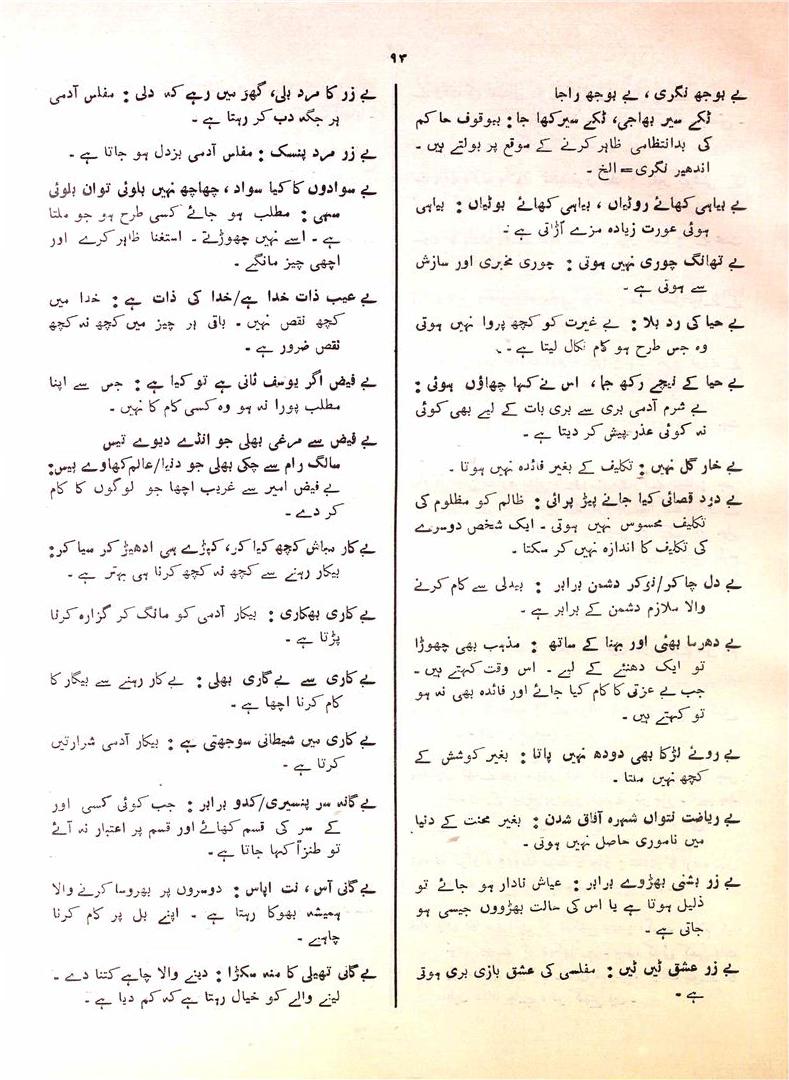 ۹۳
بے بوجھ نگری ، بے بوجھ راجا
ٹکے سیر بھاجی، ٹکے سیر کھا جا : بیوقوف حاکم
کی بدانتظامی ظاہر کرنے کے موقع پر بولتے ہیں ۔
اندھیر نگری = الخ ۔
بے بیاہی کھائے روٹیاں ، بیاہی کھائے بوٹیاں : بیاہی
ہوئی عورت زیادہ مزے اڑاتی ہے ۔
بے تھانگ چوری نہیں ہوتی : چوری مخبری اور سازش
سے ہوتی ہے ۔
بے حیا کی رد بلا : بے غیرت کو کچھ پروا نہیں ہوتی
وہ جس طرح ہو کام نکال لیتا ہے ۔
بے حیا کے نیچے رکھ جما ، اس نے کہا چھاؤں ہوئی :
بے شرم آدمی بری سے بری بات کے لیے بھی کوئی
نہ کوئی عذر پیش کر دیتا ہے ۔
بے خار گل نہیں : تکلیف کے بغیر فائدہ نہیں ہوتا ۔
بے درد قصائی کیا جانے پیڑ پرائی : ظالم کو مظلوم کی
تکلیف محسوس نہیں ہوتی ۔ ایک شخص دوسرے
کی تکلیف کا اندازہ نہیں کر سکتا ۔
بے دل چاکر/نوکر دشمن برابر : بیدلی سے کام کرنے
والا ملازم دشمن کے برابر ہے ۔
بے دھرما بھئی اور بہنا کے ساتھ : مذہب بھی چھوڑا
تو ایک دھنئے کے لیے ۔ اس وقت کہتے ہیں ۔
جب بے عزتی کا کام کیا جائے اور فائدہ بھی نہ ہو
تو کہتے ہیں ۔
بے روئے لڑکا بھی دودھ نہیں پاتا : بغیر کوشش کے
کچھ نہیں ملتا ۔
بے ریاضت نتواں شہرہ آفاق شدن : بغیر محنت کے دنیا
میں ناموری حاصل نہیں ہوتی ۔
بے زر بشنی بھڑوے برابر : عیاش نادار ہو جائے تو
ذلیل ہوتا ہے یا اس کی حالت بھڑووں جیسی ہو
جاتی ہے ۔
بے زر عشق ٹیں ٹیں : مفلسی کی عشق بازی بری ہوتی
ہے ۔
بے زر کا مرد بلی، گھر میں رہے کہ دلی : مفلس آدمی
ہر جگہ دب کر رہتا ہے ۔
بے زر مرد پنسک : مفلس آدمی بزدل ہو جاتا ہے ۔
بے سوادوں کا کیا سواد ، چھاچھ نہیں بلوئی توان بلوئی
سہی : مطلب ہو جائے کسی طرح ہو جو ملتا
ہے ۔ اسے نہیں چھوڑتے ۔ استغنا ظاہر کرے اور
اچھی چیز مانگے ۔
بے عیب ذات خدا ہے/خدا کی ذات ہے : خدا میں
کچھ نقص نہیں ۔ باقی ہر چیز میں کچھ نہ کچھ
نقص ضرور ہے ۔
بے فیض اگر یوسف ثانی ہے تو کیا ہے : جس سے اپنا
مطلب پورا نہ ہو وہ کسی کام کا نہیں ۔
بے فیض سے مرغی بھلی جو انڈے دیوے تیس
سالگ رام سے چکی بھلی جو دنیا/عالم کھاوے پیس :
بے فیض امیر سے غریب اچھا جو لوگوں کا کام
کر دے ۔
بے کار مباش کچھ کیا کر، کپڑے ہی ادھیڑ کر سیا کر :
بیکار رہنے سے کچھ نہ کچھ کرنا ہی بہتر ہے ۔
بے کاری بھکاری : بیکار آدمی کو مانگ کر گزارہ کرنا
پڑتا ہے ۔
بے کاری سے بے گاری بھلی : بے کار رہنے سے بیگار کا
کام کرنا اچھا ہے ۔
بے کاری میں شیطانی سوجھتی ہے : بیکار آدمی شرارتیں
کرتا ہے ۔
بے گانہ سر پنسیری/کدو برابر : جب کوئی کسی اور
کے سر کی قسم کھائے اور قسم پر اعتبار نہ آئے
تو طنزاً کہا جاتا ہے ۔
بے گانی آس ، نت اپاس : دوسروں پر بھروسا کرنے والا
ہمیشہ بھوکا رہتا ہے ۔ اپنے بل پر کام کرنا
چاہیے ۔
بے گانی تھیلی کا منہ سکڑا : دینے والا چاہے کتنا دے ۔
لینے والے کو خیال رہتا ہے کہ کم دیا ہے ۔